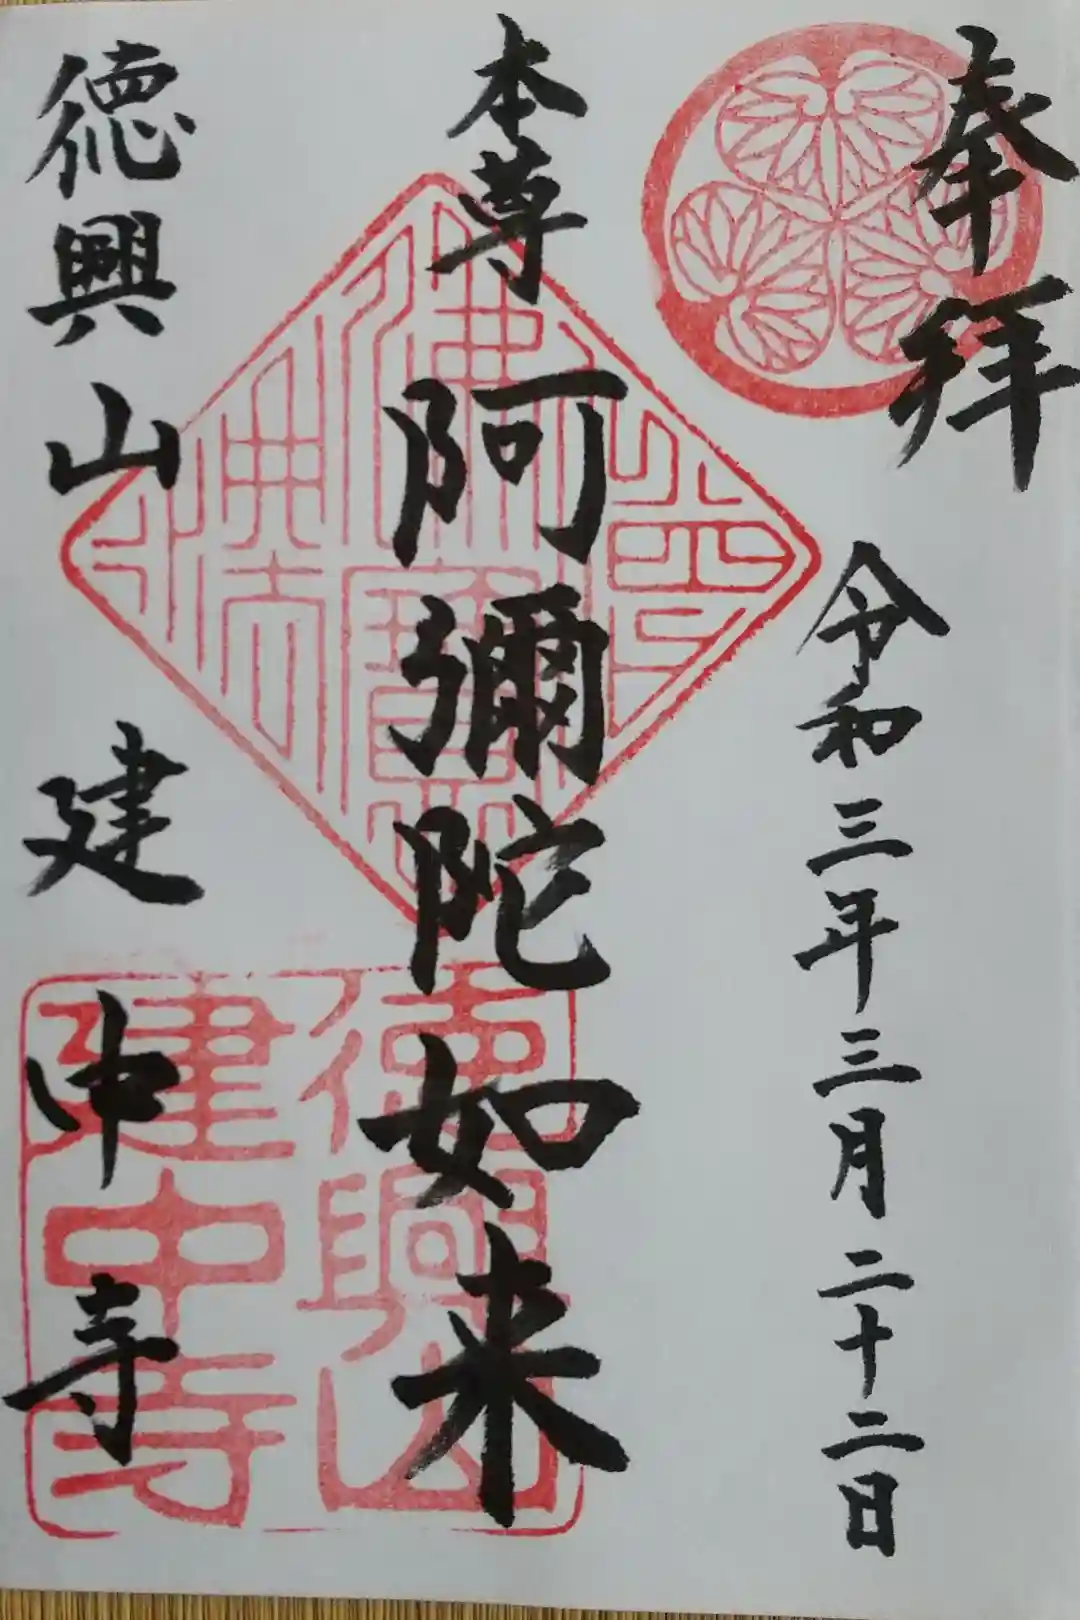 奉拝
令和三年三月二十二日
本尊 阿彌陀如来
徳興山 建中寺
徳興山
建中寺